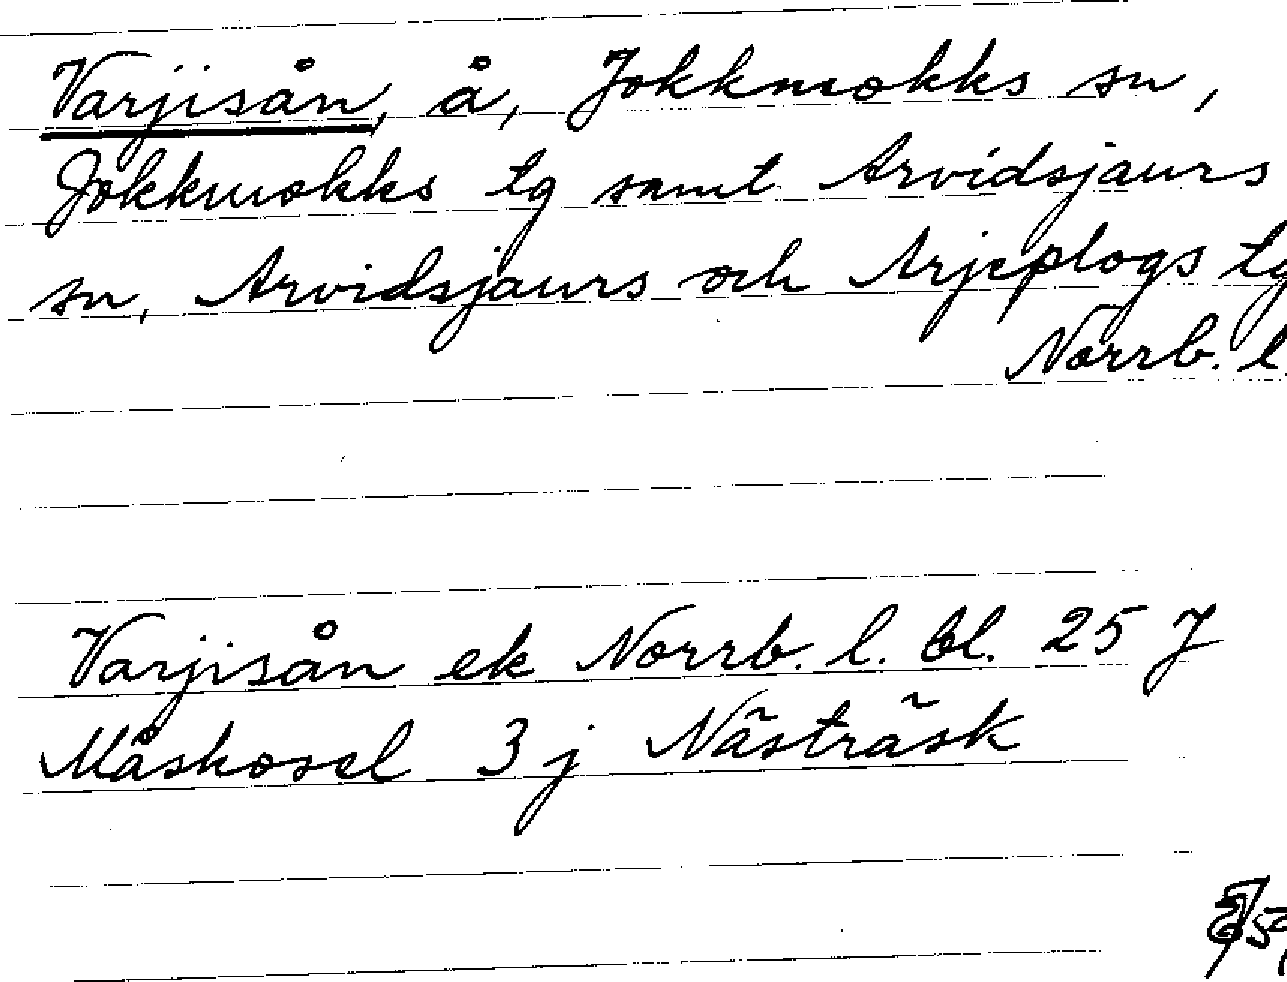 Varjisån, å, Jokkmokks sn,
Jokkmokks tg samt Arvidsjaurs
sn, Arvidsjaurs och Arjeplogs tg
Norrb. l.
Varjisån ek Norrb. l. bl. 25 J
Måskosel 3 j Nästräsk